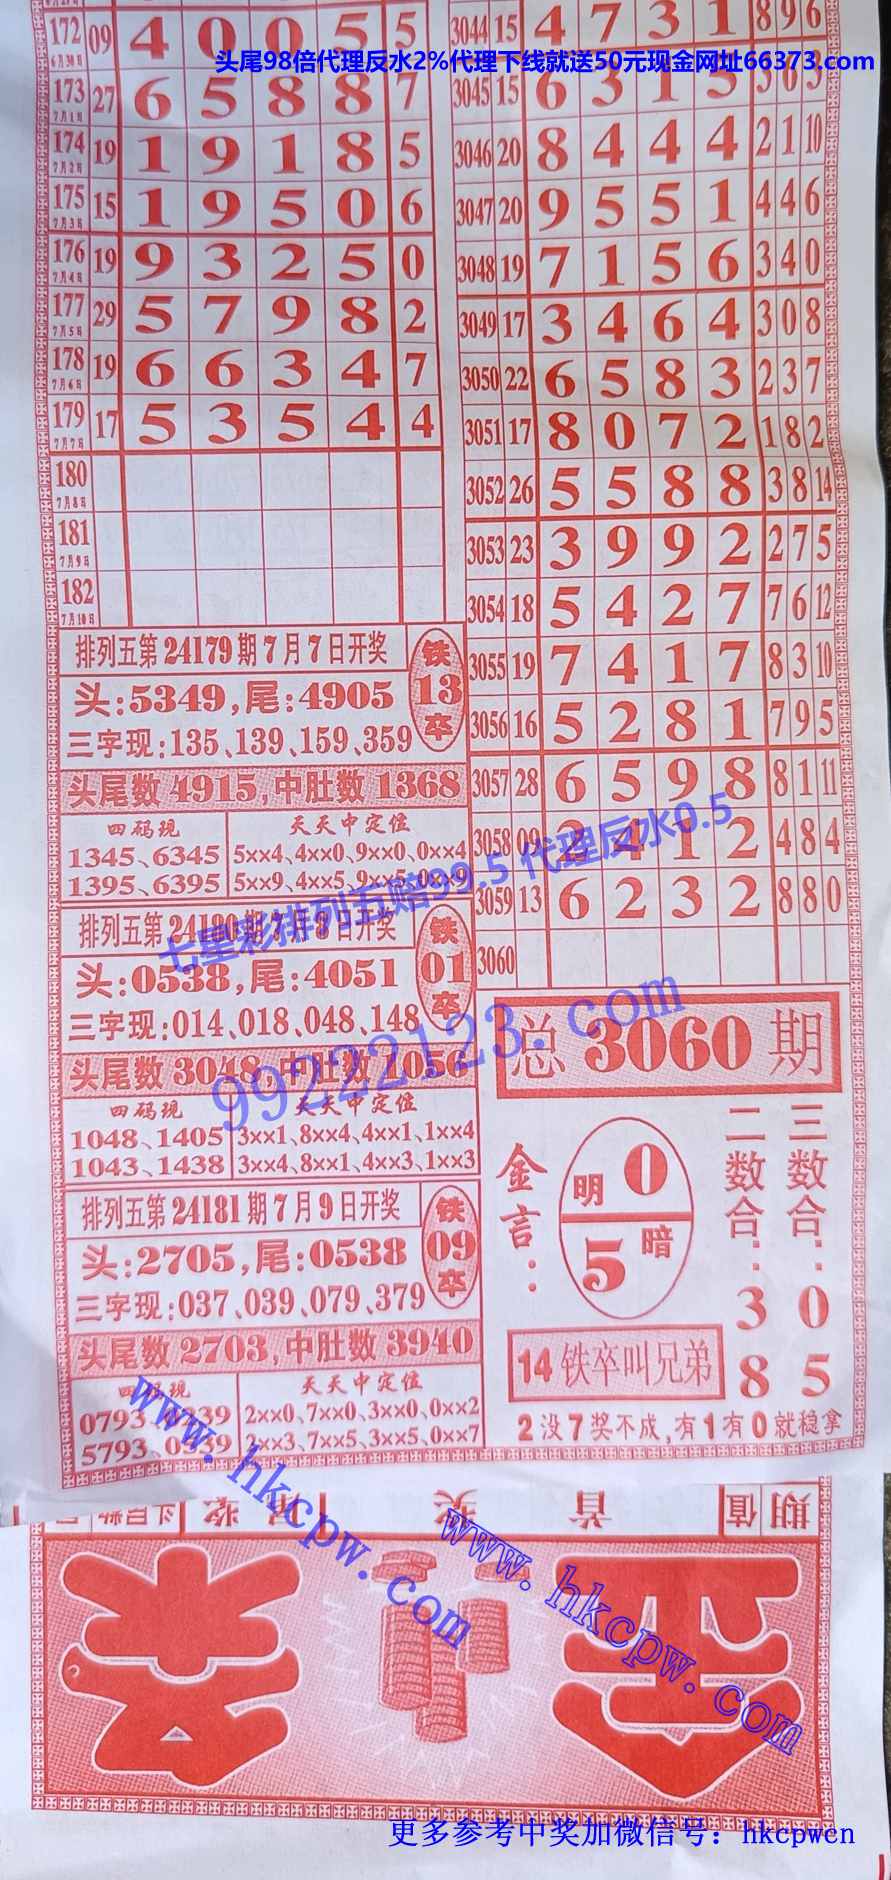 头尾98倍代理反水2%代理下线就送50元现金网址66373.com
172 6月30日 09 4 0 0 5 5
173 7月1日 27 6 5 8 8 7
174 7月2日 19 1 9 1 8 5
175 7月3日 15 1 9 5 0 6
176 7月4日 19 9 3 2 5 0
177 7月5日 29 5 7 9 8 2
178 7月6日 19 6 6 3 4 7
179 7月7日 17 5 3 5 4 4
180 7月8日
181 7月9日
182 7月10日
排列五第24179期7月7日开奖
头:5349,尾:4905
三字现:135、139、159、359
铁13卒
头尾数4915,中肚数1368
四码现 天天中定位
1345、6345 5××4、4××0、9××0、0××4
1395、6395 5××9、4××5、9××5、0××9
排列五第24180期7月8日开奖
头:0538,尾:4051
三字现:014、018、048、148
铁01卒
头尾数3048,中肚数1056
四码现 天天中定位
1048、1405 3××1、8××4、4××1、1××4
1043、1438 3××4、8××1、4××3、1××3
排列五第24181期7月9日开奖
头:2705,尾:0538
三字现:037、039、079、379
铁09卒
头尾数2703,中肚数3940
四码现 天天中定位
0793、 2××0、7××0、3××0、0××2
5793、0539 2××3、7××5、3××5、0××7
3044 15 4 7 3 1 8 9 6
3045 15 6 3 1 5 3 6 3
3046 20 8 4 4 4 2 1 10
3047 20 9 5 5 1 4 4 6
3048 19 7 1 5 6 3 4 0
3049 17 3 4 6 4 3 0 8
3050 22 6 5 8 3 2 3 7
3051 17 8 0 7 2 1 8 2
3052 26 5 5 8 8 3 8 14
3053 23 3 9 9 2 2 7 5
3054 18 5 4 2 7 7 6 12
3055 19 7 4 1 7 8 3 10
3056 16 5 2 8 1 7 9 5
3057 28 6 5 9 8 8 1 11
3058 09 2 4 1 2 4 8 4
3059 13 6 2 3 2 8 8 0
3060
总3060期
金言:
明0
5暗
二数合:38
三数合:05
14铁卒叫兄弟
2没7奖不成,有1有0就稳拿
七星彩排列五赔99.5 代理反水0.5
99222123.com
www.hkcpw.com
www.hkcpw.com
期 值 首 奖
更多参考中奖加微信号：hkcpwcn